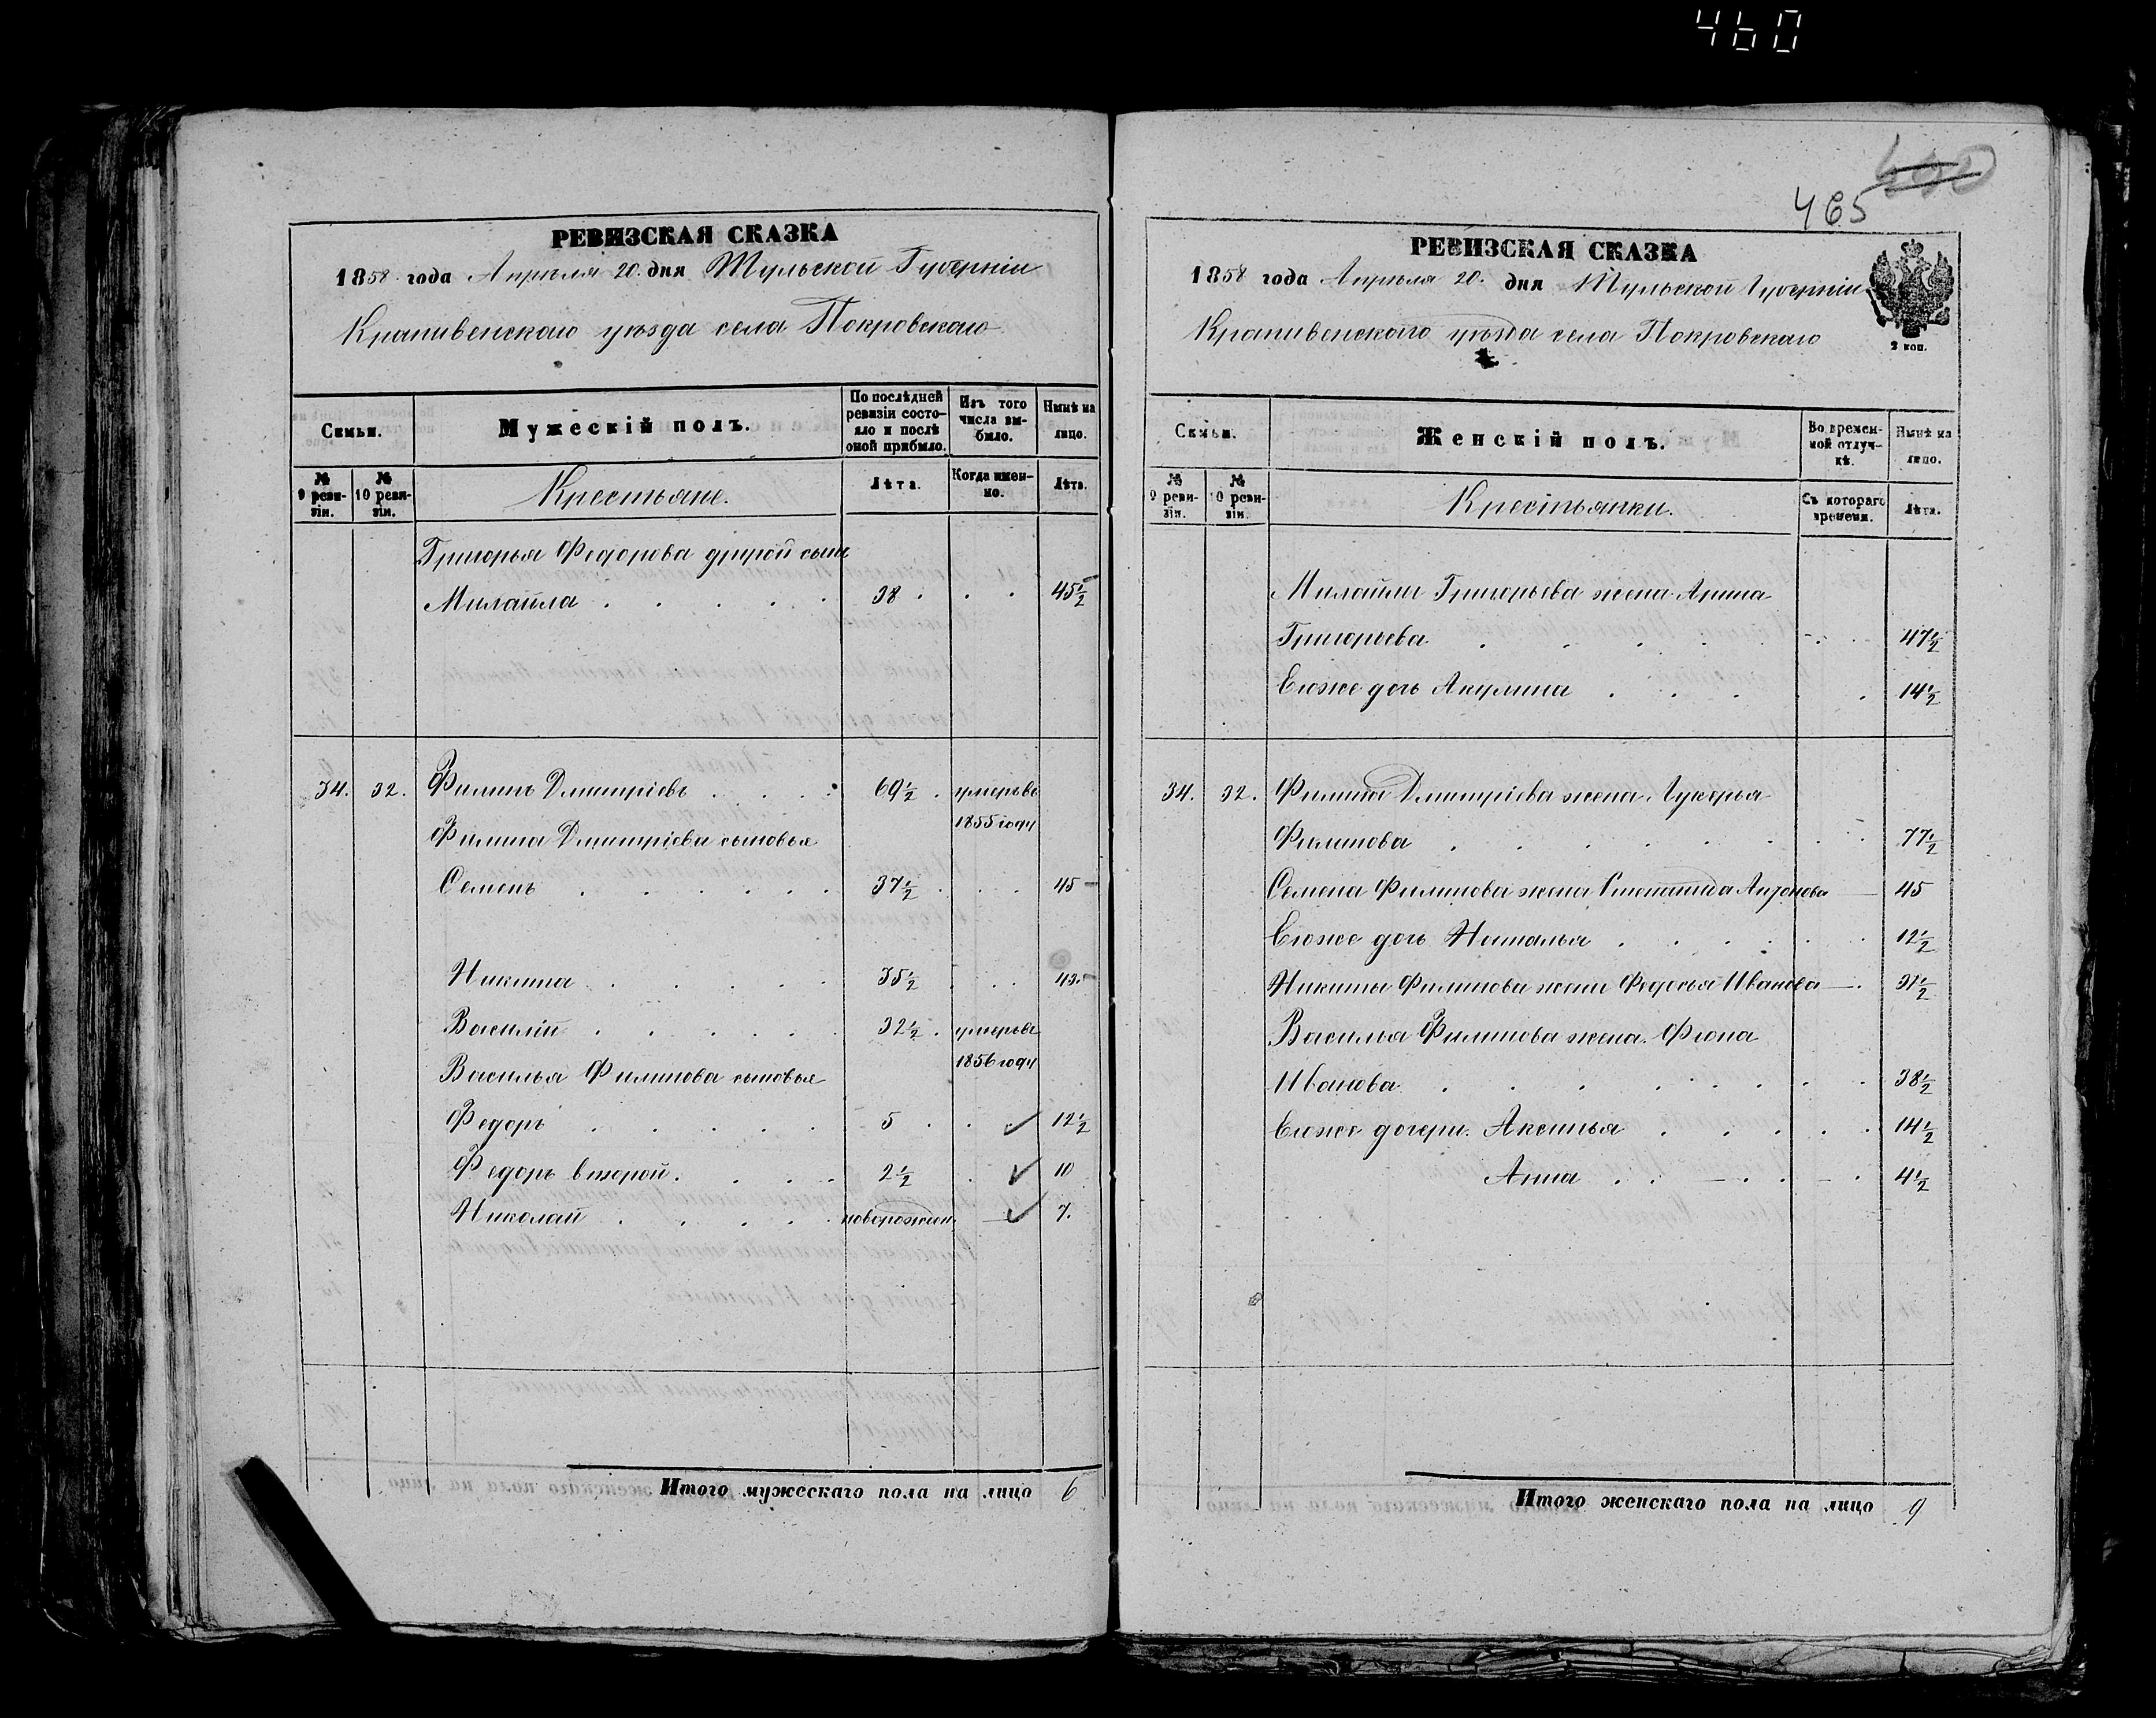 460
РЕВИЗСКАЯ СКАЗКА
1858 года Апрѣля 20. дня Тульской Губерніи
Крапивенскаго уѣзда села Покровскаго
Семьи.
Мужескій полъ.
По послѣдней ревизіи состояло и послѣ оной прибыло.
Изъ того числа выбыло.
Нынѣ на лицо.
№ 9 ревизіи.
№ 10 ревизіи.
Крестьяне.
Лѣта.
Когда именно.
Лѣта.
Григорья Федорова другой сынъ
Михайла . . . . . 38 . . . 45½
34. 32. Филипъ Дмитріевъ . . . 69½ . умеръ въ
1855 году
Филипа Дмитріева сыновья
Семенъ . . . . . . 37½ . . . 45
Никита . . . . . 35½ . . . 43
Василій . . . . . 32½ . умеръ въ
1856 году
Василья Филипова сыновья
Федоръ . . . . . 5 . . ✓ 12½
Федоръ второй . . . . 2½ . ✓ 10
Николай . . . . . новорожден. ✓ 7.
Итого мужескаго пола на лицо 6
400
465
РЕВИЗСКАЯ СКАЗКА
1858 года Апрѣля 20. дня Тульской Губерніи
Крапивенскаго уѣзда села Покровскаго
2 коп.
Семьи.
Женскій полъ.
Во временной отлучкѣ.
Нынѣ на лицо.
№ 9 ревизіи.
№ 10 ревизіи.
Крестьянки.
Съ котораго времени.
Лѣта.
Михайлы Григорьева жена Арина
Григорьева . . . . . . 47½
Его же дочь Акулина . . . . . 14½
34. 32. Филипа Дмитріева жена Лукерья
Филипова . . . . . . . . 77½
Семена Филипова жена Степанида Антонова 45
Его же дочь Наталья . . . . . 12½
Никиты Филипова жена Федосья Иванова 31½
Василья Филипова жена Фіона
Иванова . . . . . . . . 38½
Его же дочери. Аксинья . . . . . 14½
Анна . . . . . 4½
Итого женскаго пола на лицо 9